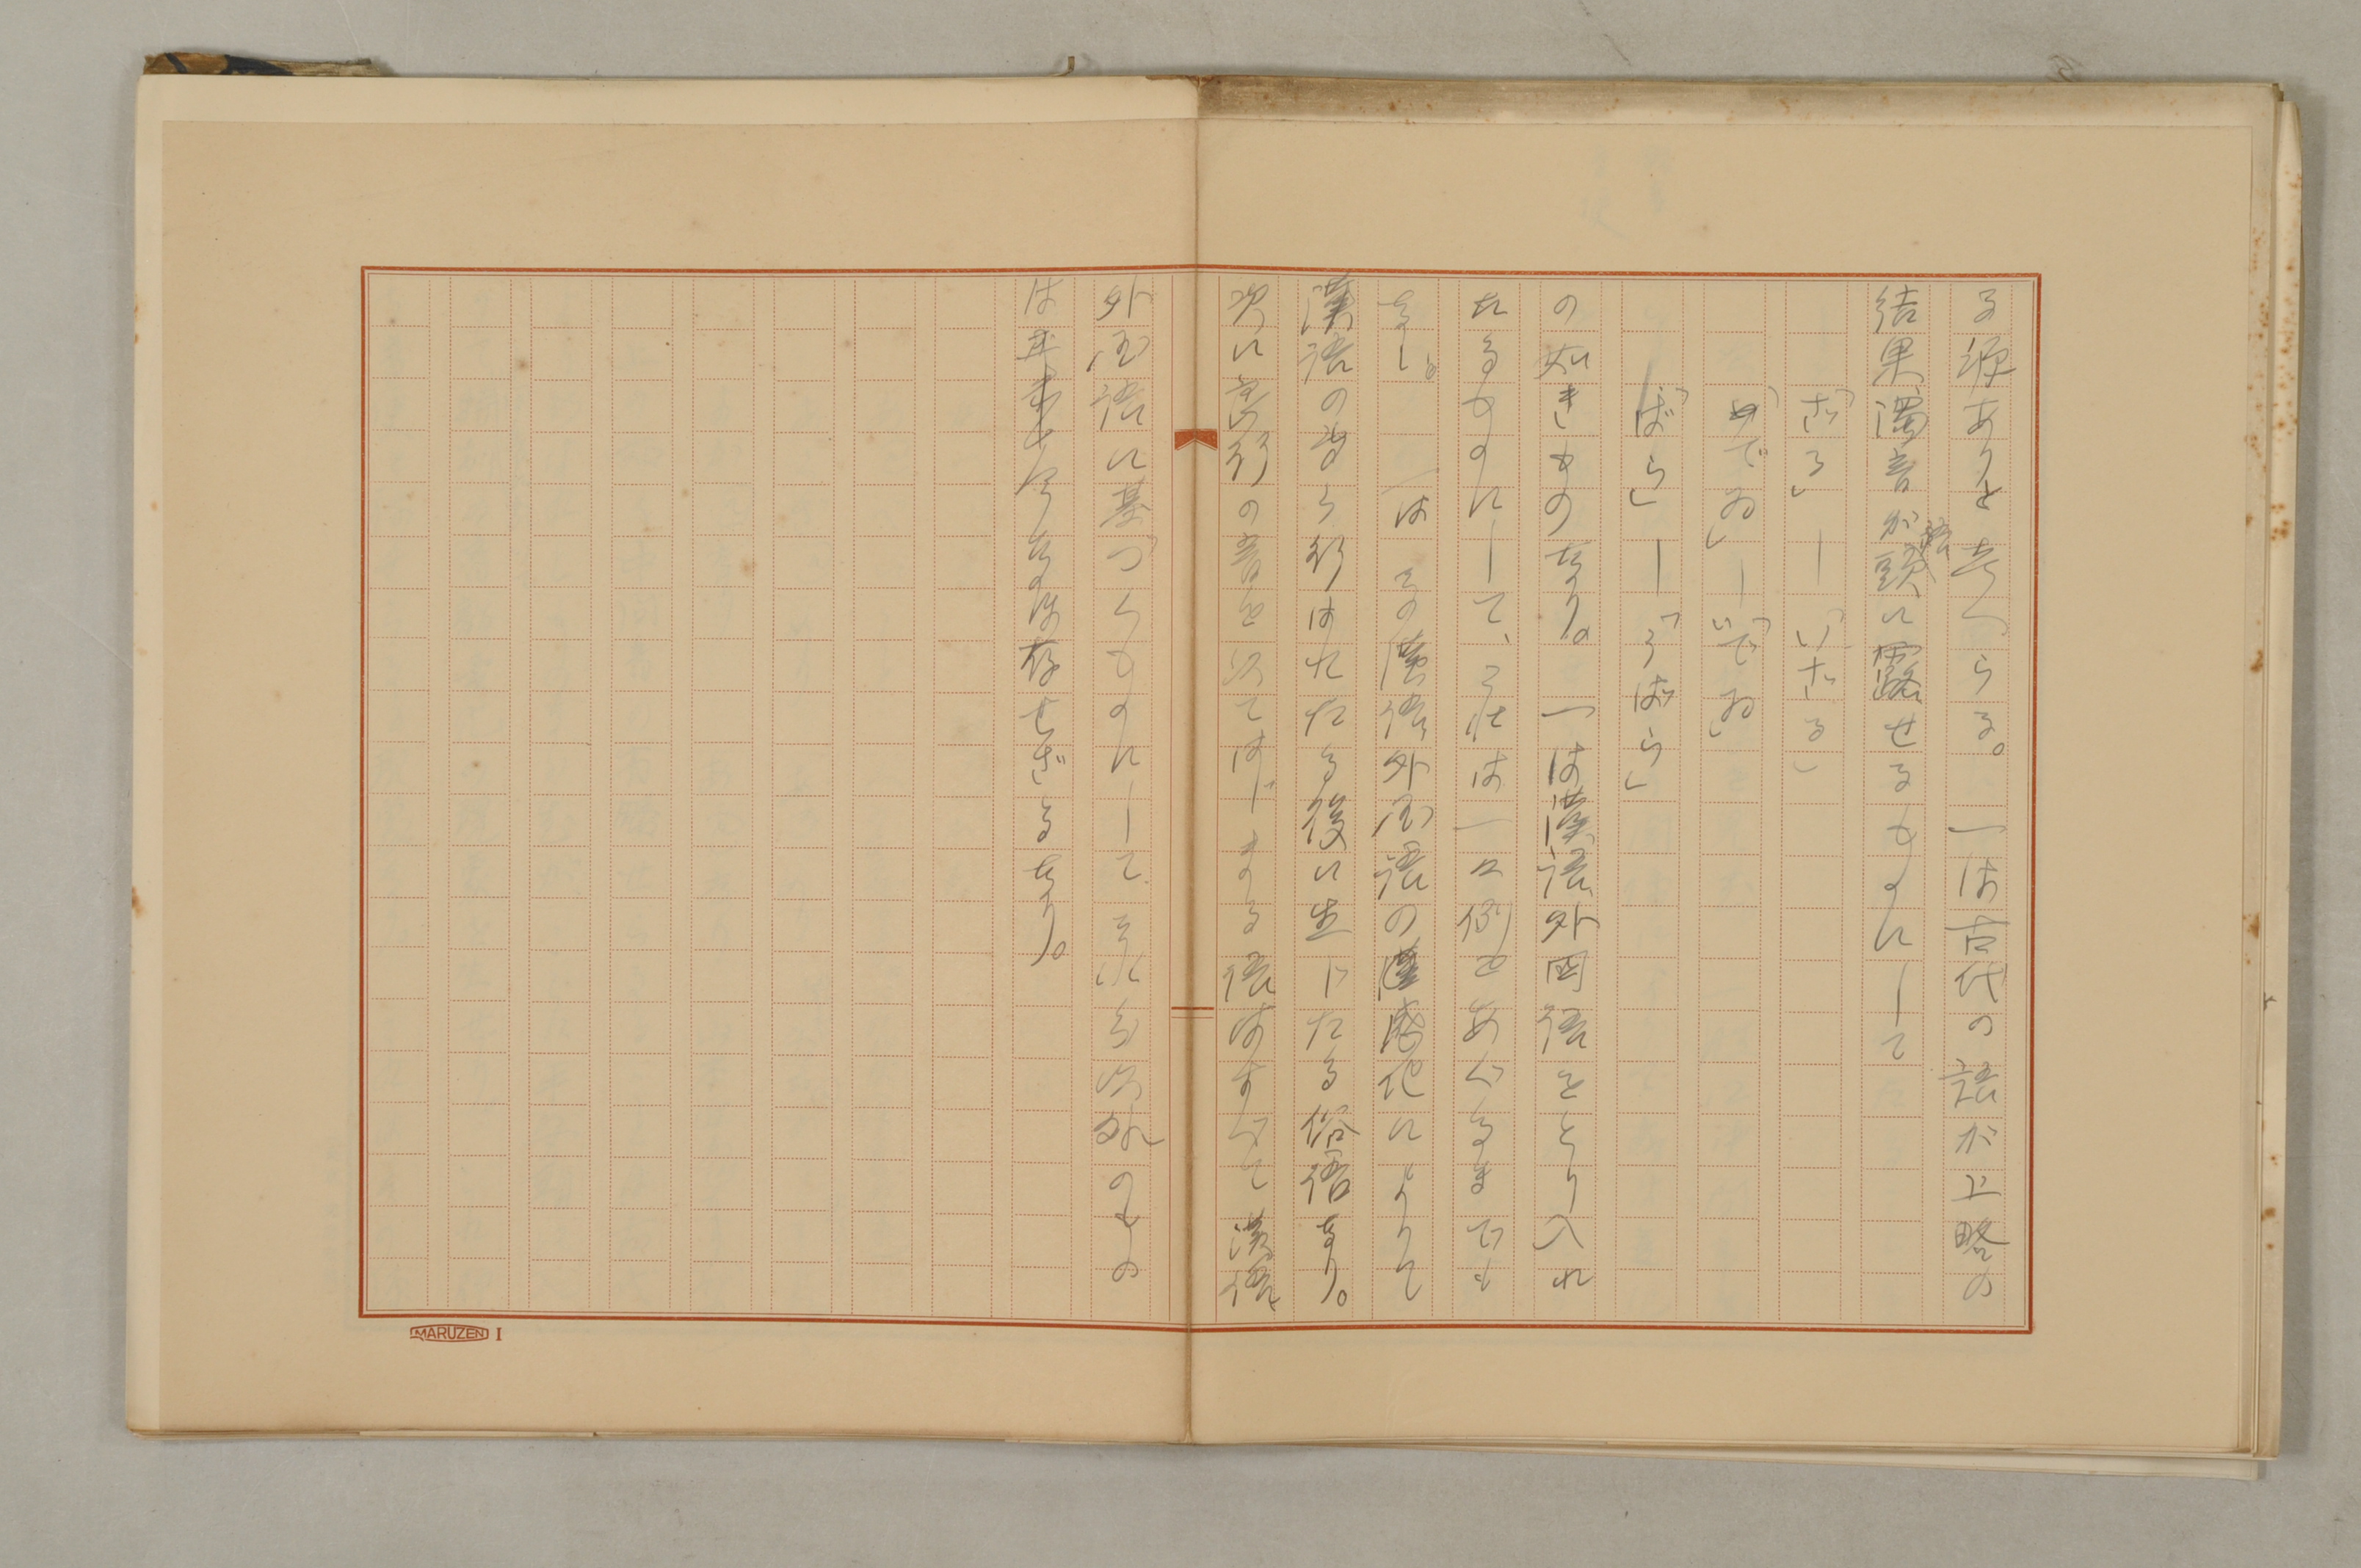 る源ありと考へらる。一は古代の語が上略の
結果濁音が語頭に露せるものにして
「ざる」―「いざる」
「でゐ」―「いでゐ」
「ばら」―「うばら」
の如きものなり。一は漢語外国語をとり入れ
たるものにして、これは一々例をあぐるまでも
なし。一はその漢語外国語の感化によりて
漢語のあら行はれたる後に生じたる俗語なり。
次に良行の音を以てはじまる語はすべて漢語
外国語に基づくものにして、それ以外のもの
は存せざるなり。
MARUZEN I